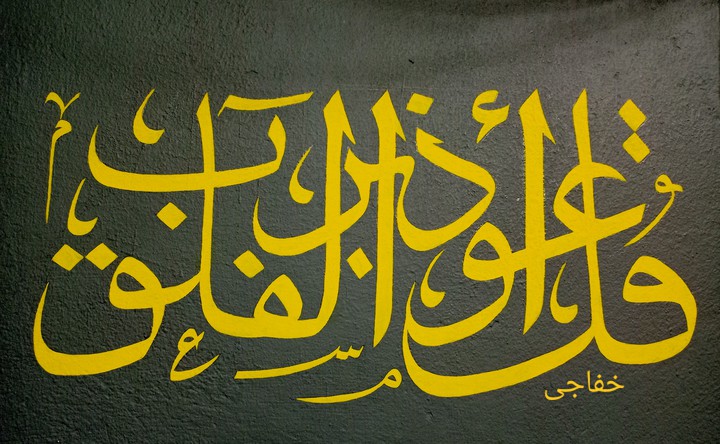 قل أعوذ برب الفلق
خفاجى